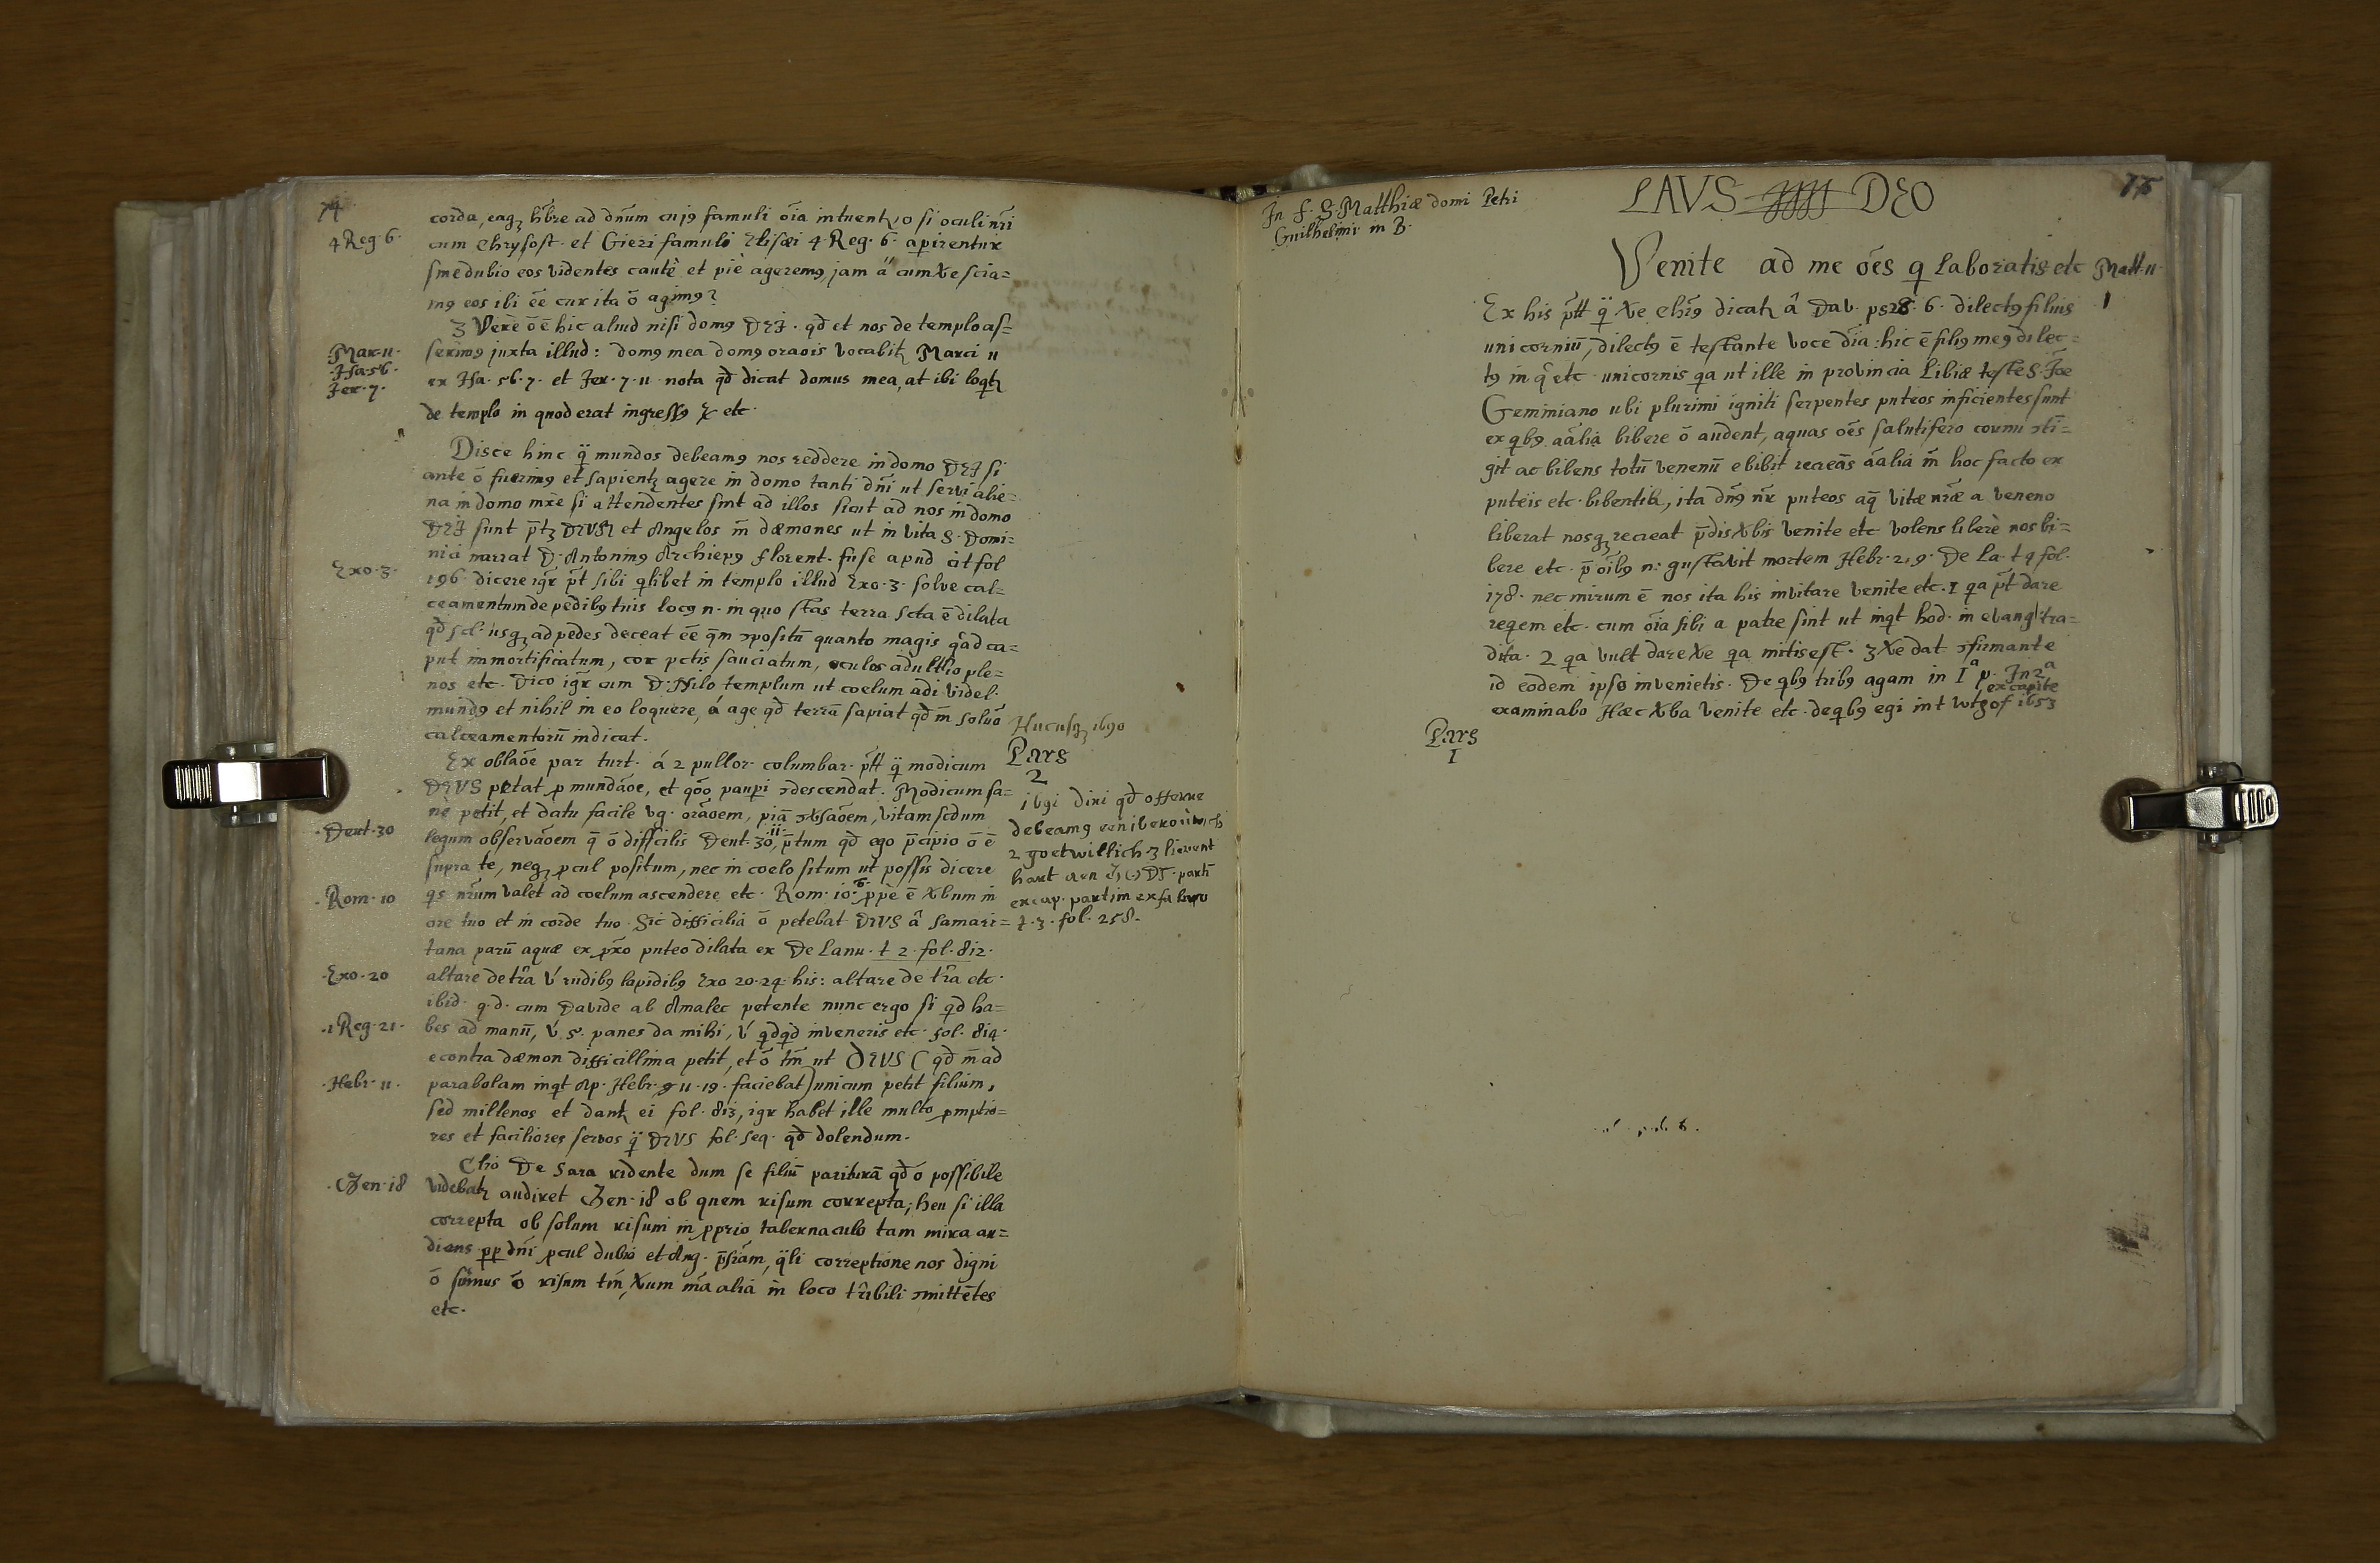 74
corda, eaq₃ libre ad dn̄um cujꝰ famuli o͞ia intuentꝛ, o si oculi nr̄i
4 Reg. 6.
cum Chrysost. et Giezi famuli Elisæi 4 Reg. 6. aperirentur
sine dubio eos videntes cautè et piè ageremꝰ, jam a͞u cum ve scia=
mꝰ eos ibi e͞e cur ita o͞ agimꝰ?
3 Verè o͞ e͞ hic aliud nisi domꝰ DEI. qd̄ et nos de templo as=
Mar. 11.
serimꝰ juxta illud: domꝰ mea domꝰ orao͞is vocabitꝛ Marci 11
Isa. 56.
ex Isa. 56. 7. et Jer. 7. 11 nota qd̄ dicat domus mea, at ibi loqtꝛ
Jer. 7.
de templo in quod erat ingressꝰ etc.
Disce hinc q̈ mundos debeamꝰ nos reddere in domo DEI si
ante o͞ fuerimꝰ et sapientꝛ agere in domo tanti dn̄i ut servi alie=
na in domo mr̄e si attendentes sint ad illos sicut ad nos in domo
DEI sunt p̄tꝫ DEUS et Angelos m̄ dæmones ut in vita S. Domi=
nici narrat D. Antoninꝰ Archiepꝰ Florent. fuse apud cit fol
Exo. 3.
196. dicere igr̄ p̄t sibi qlibet in templo illud Exo. 3. solve cal=
ceamentum de pedibꝰ tuis locꝰ n. in quo stas terra scta e͞ dilata
qd̄ scl. usq₃ ad pedes deceat e͞e q̄m ɔpositū quanto magis q̄ ad ca=
put immortificatum, cor pctis sauciatum, oculos adulterio ple=
nos etc. Dico igr̄ cum D. Nilo templum ut coelum adi videl.
mundꝰ et nihil in eo loquere, á age qd̄ terrā sapiat qd̄ m̄ soluō
calceamentorū indicat.
Hucusq₃ 1690
Pars
2
Ex oblao͞e par turt. á 2 pullor. columbar. p̄tt q̈ modicum
DEUS petat p mundao͞e, et qōo paup̄i ɔdescendat. Modicum sa=
nè petit, et datu facile vg. orao͞em, piā ɔvsao͞em, vitam scdum
Deut. 30
legum observao͞em q̄ o͞ difficilis Deut. 30. 11 p̄tum qd̄ ego p̄cipio o͞ e͞
supra te, neq₃ pcul positum, nec in coelo situm ut possis dicere
Rom. 10
qs nrūm valet ad coelum ascendere etc. Rom. 10. 6. ppè e͞ vbum in
ore tuo et in corde tuo. Sic difficilia o͞ petebat DEUS a͞ Samari=
tana parū aquæ ex pxo puteo dilata ex De Lanu. t 2. fol. 812.
1691 dixi qd̄ offerre
2 goetwillich 3
t. 3. fol. 258.
Exo. 20
altare de tr̄a v́ rudibꝰ lapidibꝰ Exo 20. 24. his: altare de tr̄a etc.
ibid. q. d. cum Davide ab Amalec petente nunc ergo si qd̄ ha=
1 Reg. 21.
bes ad manū, v́ 5. panes da mihi, v́ qdqd̄ inveneris etc. fol. 814.
econtra dæmon difficillima petit, et o͞ tm̄ ut DEUS (qd̄ m̄ ad
Hebr. 11.
parabolam inqt Ap. Hebr. 11. 19. faciebat) unicum petit filium,
sed millenos et dantꝛ ei fol. 813, igr habet ille multo pmptio=
res et faciliores servos q̈ DEUS fol. seq. qd̄ dolendum.
Clio De Sara ridente dum se filiū parituram qd̄ o͞ possibile
Gen. 18
videbatꝛ audiret Gen. 18 ob quem risum correpta; heu si illa
correpta ob solum risum in pprio tabernaculo tam mira au=
diens pp dn̄i pcul dubio et Ang. p̄sīam, q̈li correptione nos digni
o͞ sumus o͞ risum tm̄, vum m̄a alia in loco tr̄ibili ɔmittētes
etc.
In f. S. Matthiæ domi Petri
Guilhelmi in B.
LAVS DEO
75
Venite ad me o͞es q laboratis etc Matt. 11.
Ex his p̄tt q̈ ve Chr̄ꝰ dicatꝛ a͞ Dav. ps 28. 6. dilectꝰ filius
1
unicorniū, dilectꝰ e͞ testante voce d̄ia: hic e͞ filiꝰ meꝰ dilec=
tꝰ in q̄ etc. unicornis qa ut ille in provincia Libiæ teste S. Joe
Geminiano ubi plurimi igniti serpentes puteos inficientes sunt
ex qbꝰ aālia bibere o͞ audent, aquas o͞es salutifero cornu ɔti=
git ac bibens totū venenū ebibit recreās aālia m̄ hoc facto ex
puteis etc. bibentia, ita dn̄ꝰ nr̄ puteos aq̄ vitæ nr̄æ a veneno
liberat nosq₃ recreat p̄dis vbis venite etc volens liberè nos bi=
bere etc. p̄ oībꝰ n. gustavit mortem Hebr. 2, 9. De La. t 4 fol.
178. nec mirum e͞ nos ita his invitare venite etc. 1 qa p̄t dare
regem etc. cum o͞ia sibi a patre sint ut inqt hod. in evangl tra=
dita. 2 qa vult dare ve qa mitis est. 3 ve dat ɔfirmante
id eodem ipso invenietis. De qbꝰ tribꝰ agam in 1ª p. In 2ª
ex capite
examinabo Hæc vba venite etc. de qbꝰ egi in t 1653
Pars
1